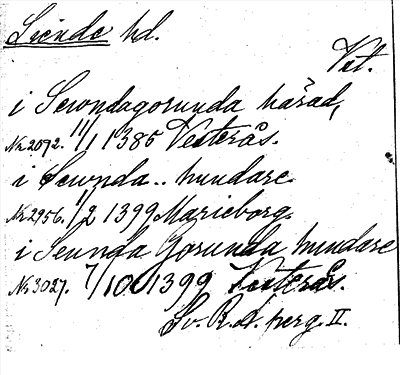 Siende hd.
Vst.
i Sewndagorunda härad,
Nr. 2092. 11/1 1385 Vesterås.
i Sewnda.. hundare
Nr. 2956. 1/2 1399 Marieborg.
i Seunda Gorunda hundare
Nr. 3027. 7/10 1399 Vesterås.
Sv. R. A. perg. II.